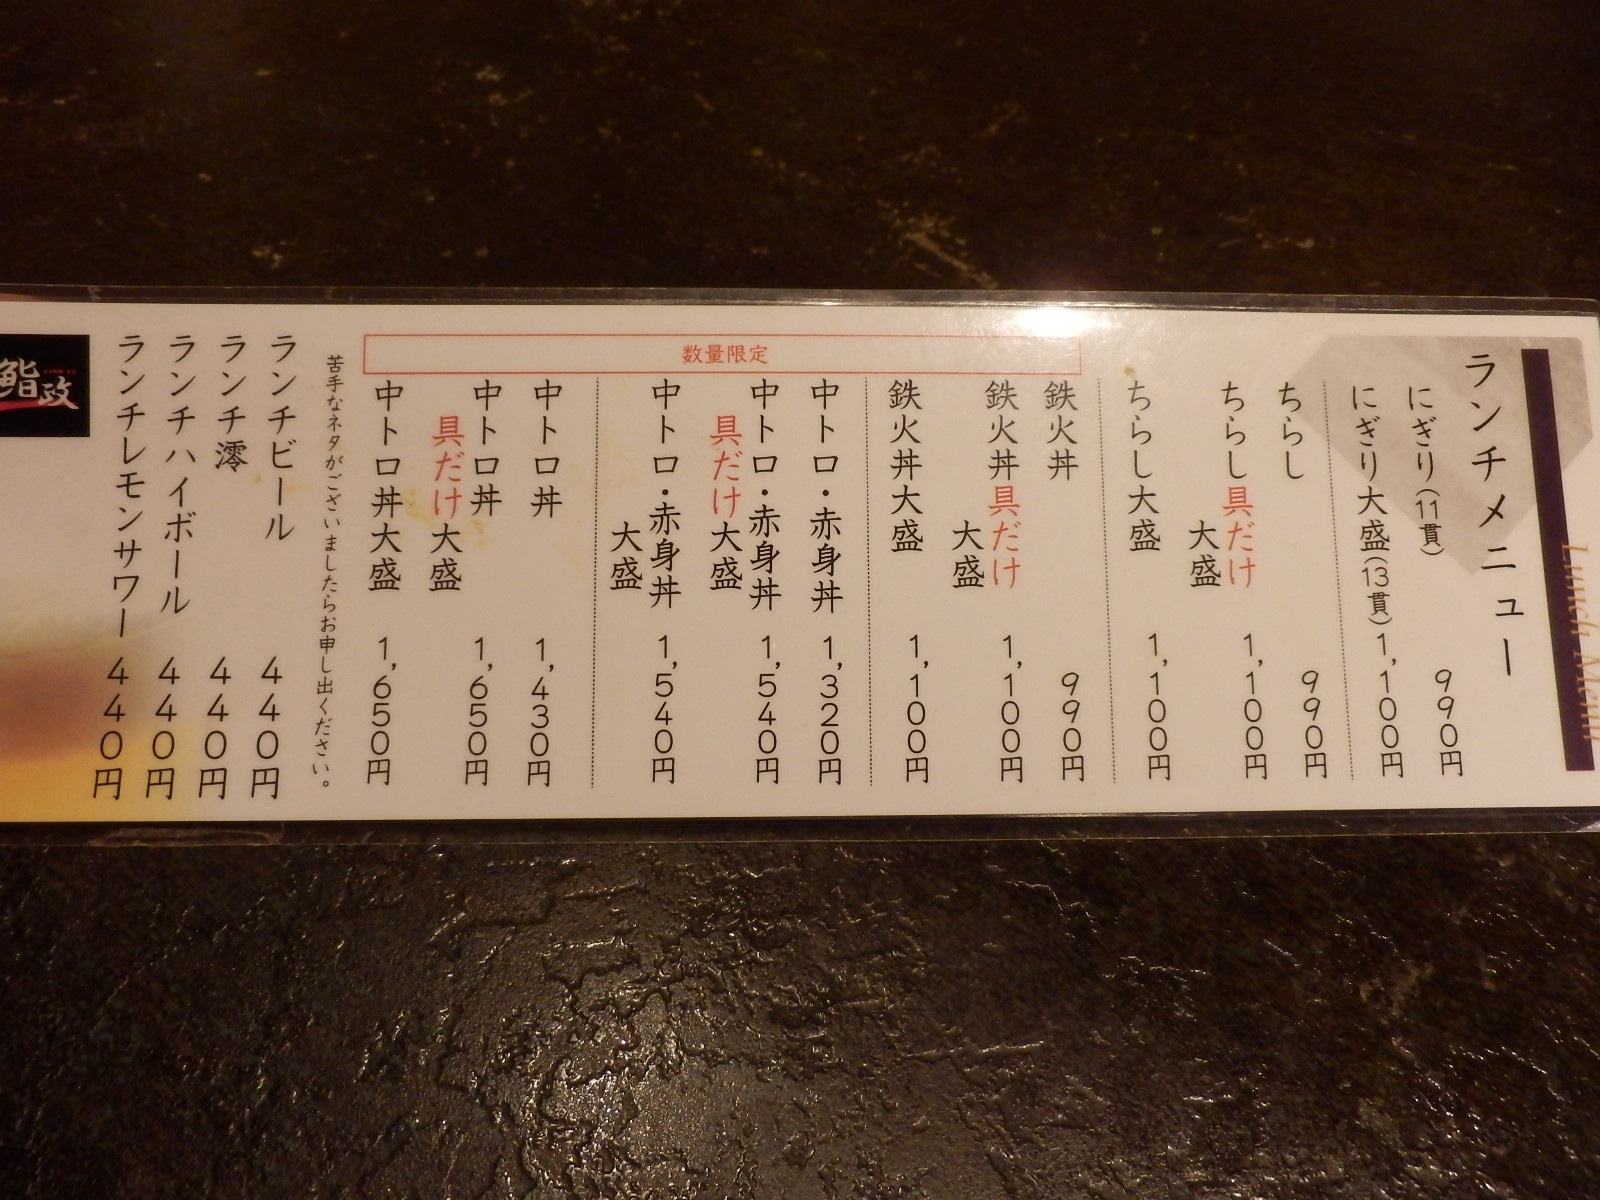 ランチメニュー
Lunch Menu
にぎり(11貫) 990円
にぎり大盛(13貫) 1,100円
ちらし 990円
ちらし具だけ大盛 1,100円
ちらし大盛 1,100円
数量限定
鉄火丼 990円
鉄火丼具だけ大盛 1,100円
鉄火丼大盛 1,100円
中トロ・赤身丼 1,320円
中トロ・赤身丼具だけ大盛 1,540円
中トロ・赤身丼大盛 1,540円
中トロ丼 1,430円
中トロ丼具だけ大盛 1,650円
中トロ丼大盛 1,650円
苦手なネタがございましたらお申し出ください。
ランチビール 440円
ランチ澪 440円
ランチハイボール 440円
ランチレモンサワー 440円
鮨政